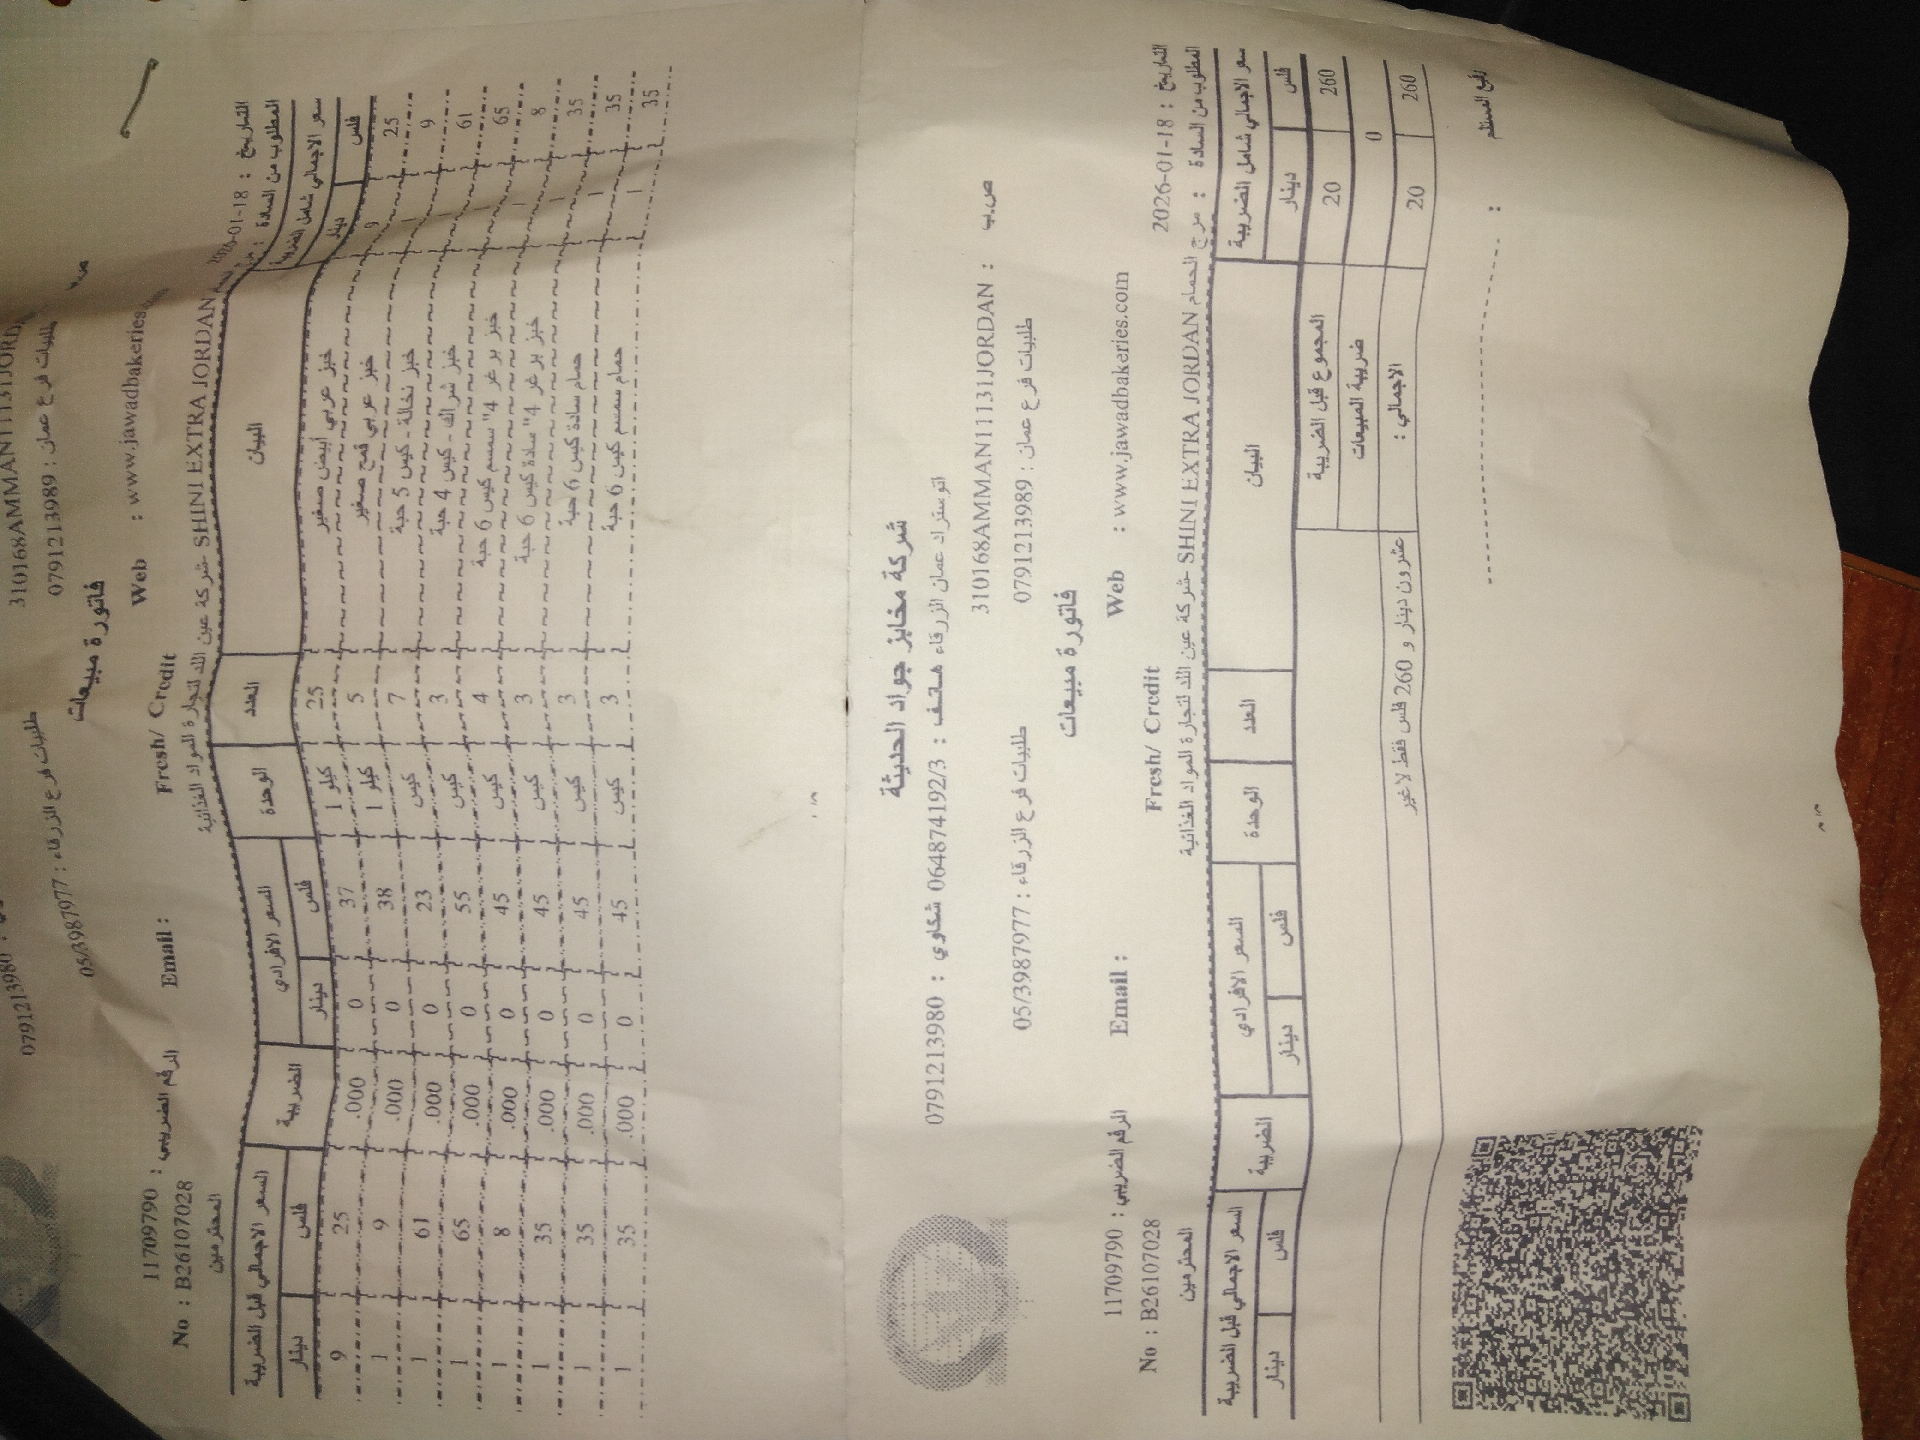 310168AMMAN11131JORD
0791213980
طلبيات فرع عمان : 0791213989
طلبيات فرع الزرقاء : 05/3987977
فاتورة مبيعات
Web : www.jawadbakeries
Fresh/ Credit
Email :
الرقم الضريبي : 11709790
التاريخ : 01-18
No : B26107028
المطلوب من السادة :
SHINI EXTRA JORDAN -شركة عين اللد لتجارة المواد الغذائية
المحترمين
سعر الاجمالي شامل الضريبة | البيان | العدد | الوحدة | السعر الافرادي | الضريبة | السعر الاجمالي قبل الضريبة
دينار | فلس | دينار | فلس | دينار | فلس
9 | 25 | خبز عربي أبيض صغير | 25 | كيلو 1 | 0 | 37 | .000 | 9 | 25
1 | 9 | خبز عربي قمح صغير | 5 | كيلو 1 | 0 | 38 | .000 | 1 | 9
1 | 61 | خبز نخالة - كيس 5 حبة | 7 | كيس | 0 | 23 | .000 | 1 | 61
1 | 65 | خبز شراك - كيس 4 حبة | 3 | كيس | 0 | 55 | .000 | 1 | 65
1 | 8 | خبز برغر 4" سمسم كيس 6 حبة | 4 | كيس | 0 | 45 | .000 | 1 | 8
1 | 35 | خبز برغر 4" سادة كيس 6 حبة | 3 | كيس | 0 | 45 | .000 | 1 | 35
1 | 35 | حمام سادة كيس 6 حبة | 3 | كيس | 0 | 45 | .000 | 1 | 35
1 | 35 | حمام سمسم كيس 6 حبة | 3 | كيس | 0 | 45 | .000 | 1 | 35
شركة مخابز جواد الحديثة
اتوستراد عمان الزرقاء هاتف : 064874192/3 شكاوي : 0791213980
ص.ب : 310168AMMAN11131JORDAN
طلبيات فرع عمان : 0791213989
طلبيات فرع الزرقاء : 05/3987977
فاتورة مبيعات
Web : www.jawadbakeries.com
Fresh/ Credit
Email :
الرقم الضريبي : 11709790
التاريخ : 2026-01-18
No : B26107028
المطلوب من السادة : مرج الحمام SHINI EXTRA JORDAN -شركة عين اللد لتجارة المواد الغذائية
المحترمين
سعر الاجمالي شامل الضريبة | البيان | العدد | الوحدة | السعر الافرادي | الضريبة | السعر الاجمالي قبل الضريبة
دينار | فلس | دينار | فلس | دينار | فلس
20 | 260 | المجموع قبل الضريبة
0 | ضريبة المبيعات
20 | 260 | الاجمالي : | عشرون دينار و 260 فلس فقط لا غير